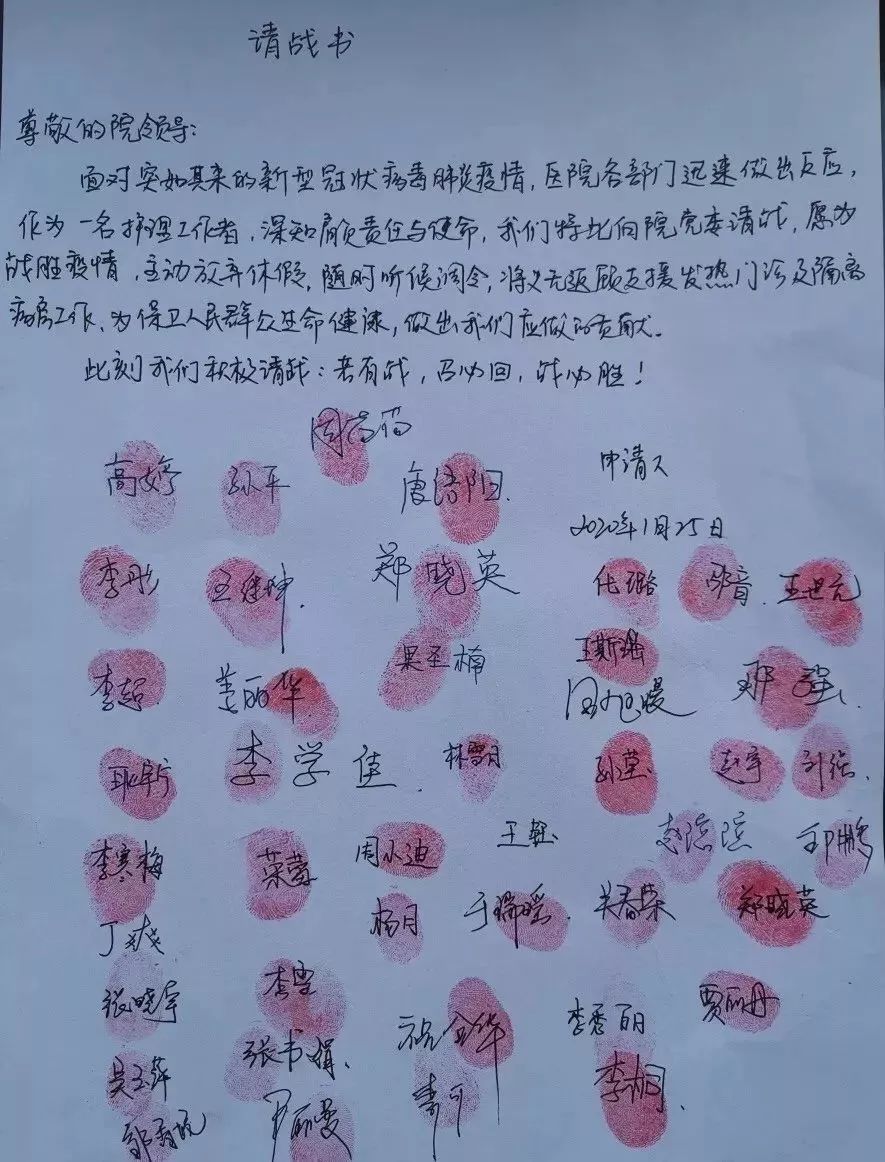 请战书
尊敬的院领导:
面对突如其来的新型冠状病毒肺炎疫情,医院各部门迅速做出反应,
作为一名护理工作者,深知肩负责任与使命,我们特此向院党委请战,愿为
战胜疫情,主动放弃休假,随时听候调令,将义无返顾支援发热门诊及隔离
病房工作、为保卫人民群众生命健康,做出我们应做的贡献。
此刻我们积极请战:若有战,召必回,战必胜!
申请人
2020年1月25日
高婷 孙平
李彤 王继坤 郑晓英 王世元
李超 姜丽华 吴圣楠
李学佳 林雪月 孙莹 赵宇
李寒梅 周小迪 王钰
丁爽 杨月 于瑞瑶 关春荣 郑晓英
张晓宇 李雪 李秀丽 贾丽丹
吴玉萍 张书娟